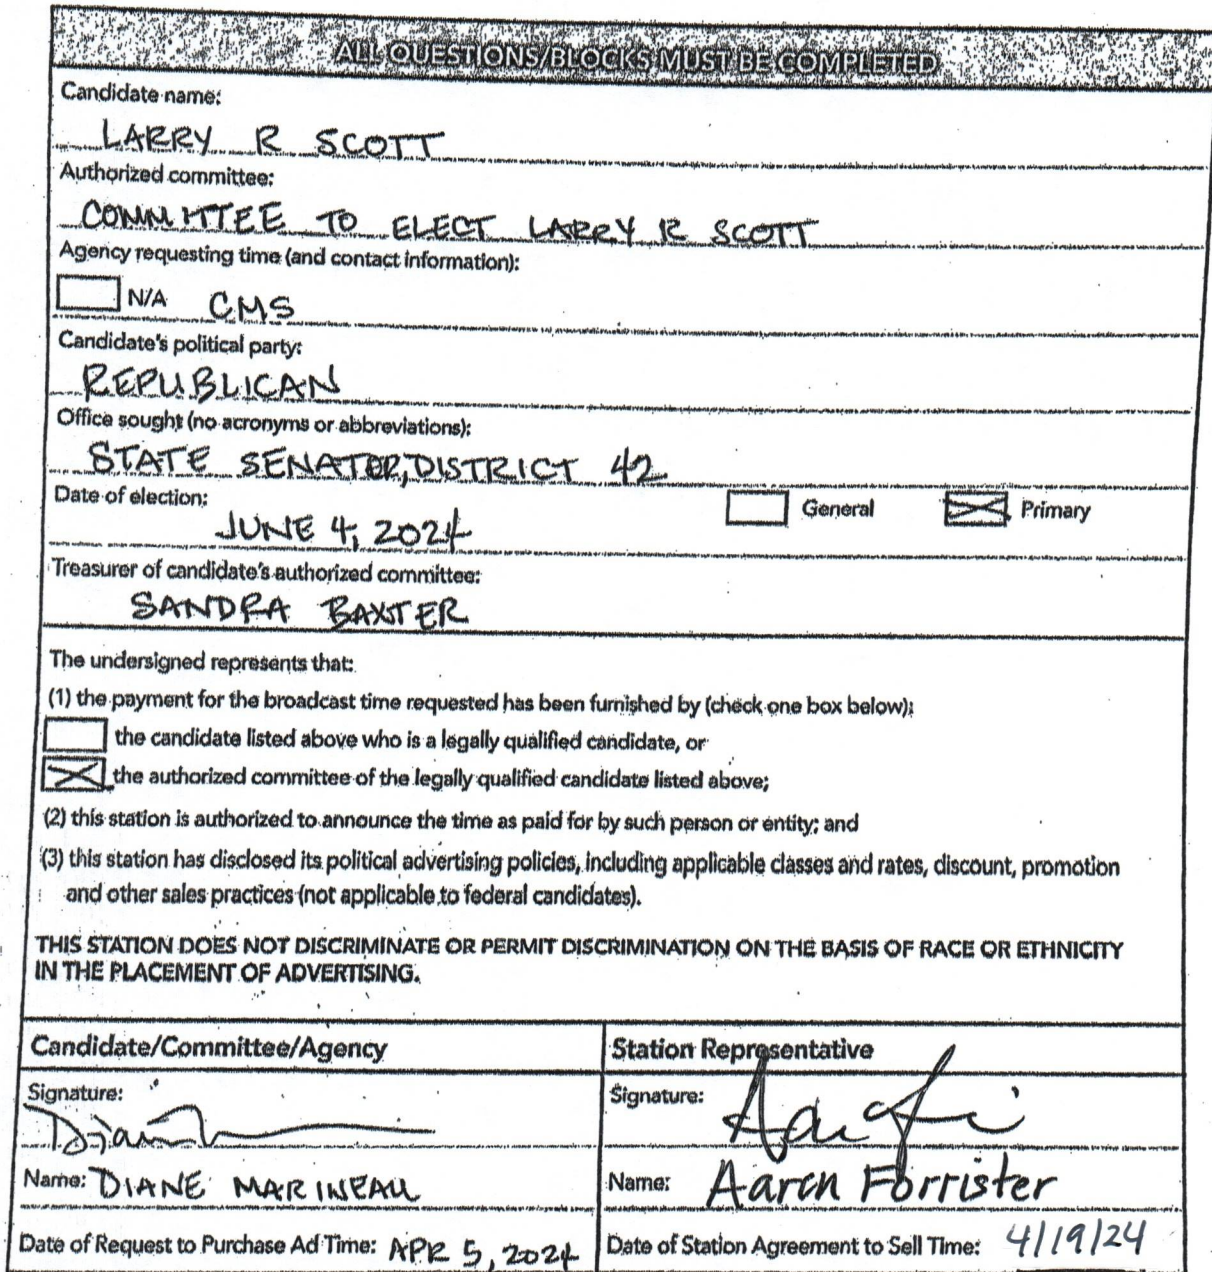 ALL QUESTIONS/BLOCKS MUST BE COMPLETED
Candidate name:
LARRY R SCOTT
Authorized committee:
COMMITTEE TO ELECT LARRY R SCOTT
Agency requesting time (and contact information):
N/A CMS
Candidate's political party:
REPUBLICAN
Office sought (no acronyms or abbreviations):
STATE SENATOR, DISTRICT 42
Date of election:
General Primary
JUNE 4, 2024
Treasurer of candidate's authorized committee:
SANDRA BAXTER
The undersigned represents that:
(1) the payment for the broadcast time requested has been furnished by (check one box below):
the candidate listed above who is a legally qualified candidate, or
the authorized committee of the legally qualified candidate listed above;
(2) this station is authorized to announce the time as paid for by such person or entity; and
(3) this station has disclosed its political advertising policies, including applicable classes and rates, discount, promotion
and other sales practices (not applicable to federal candidates).
THIS STATION DOES NOT DISCRIMINATE OR PERMIT DISCRIMINATION ON THE BASIS OF RACE OR ETHNICITY
IN THE PLACEMENT OF ADVERTISING.
Candidate/Committee/Agency
Signature:
Name: DIANE MARINEAU
Date of Request to Purchase Ad Time: APR 5, 2024
Station Representative
Signature:
Name: Aaron Forrister
Date of Station Agreement to Sell Time: 4/19/24